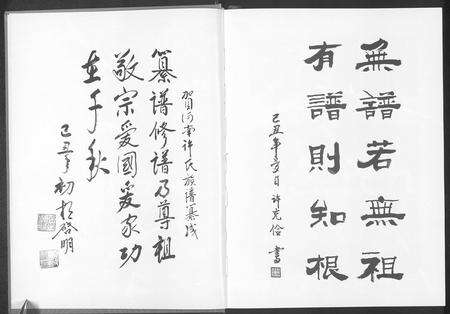 無譜若無祖
有譜則知根
己丑年 月 许克俭 書
賀河南许氏族譜纂成
纂譜修譜乃尊祖
敬宗爱國爱家功
在千秋
己丑 初 啓明